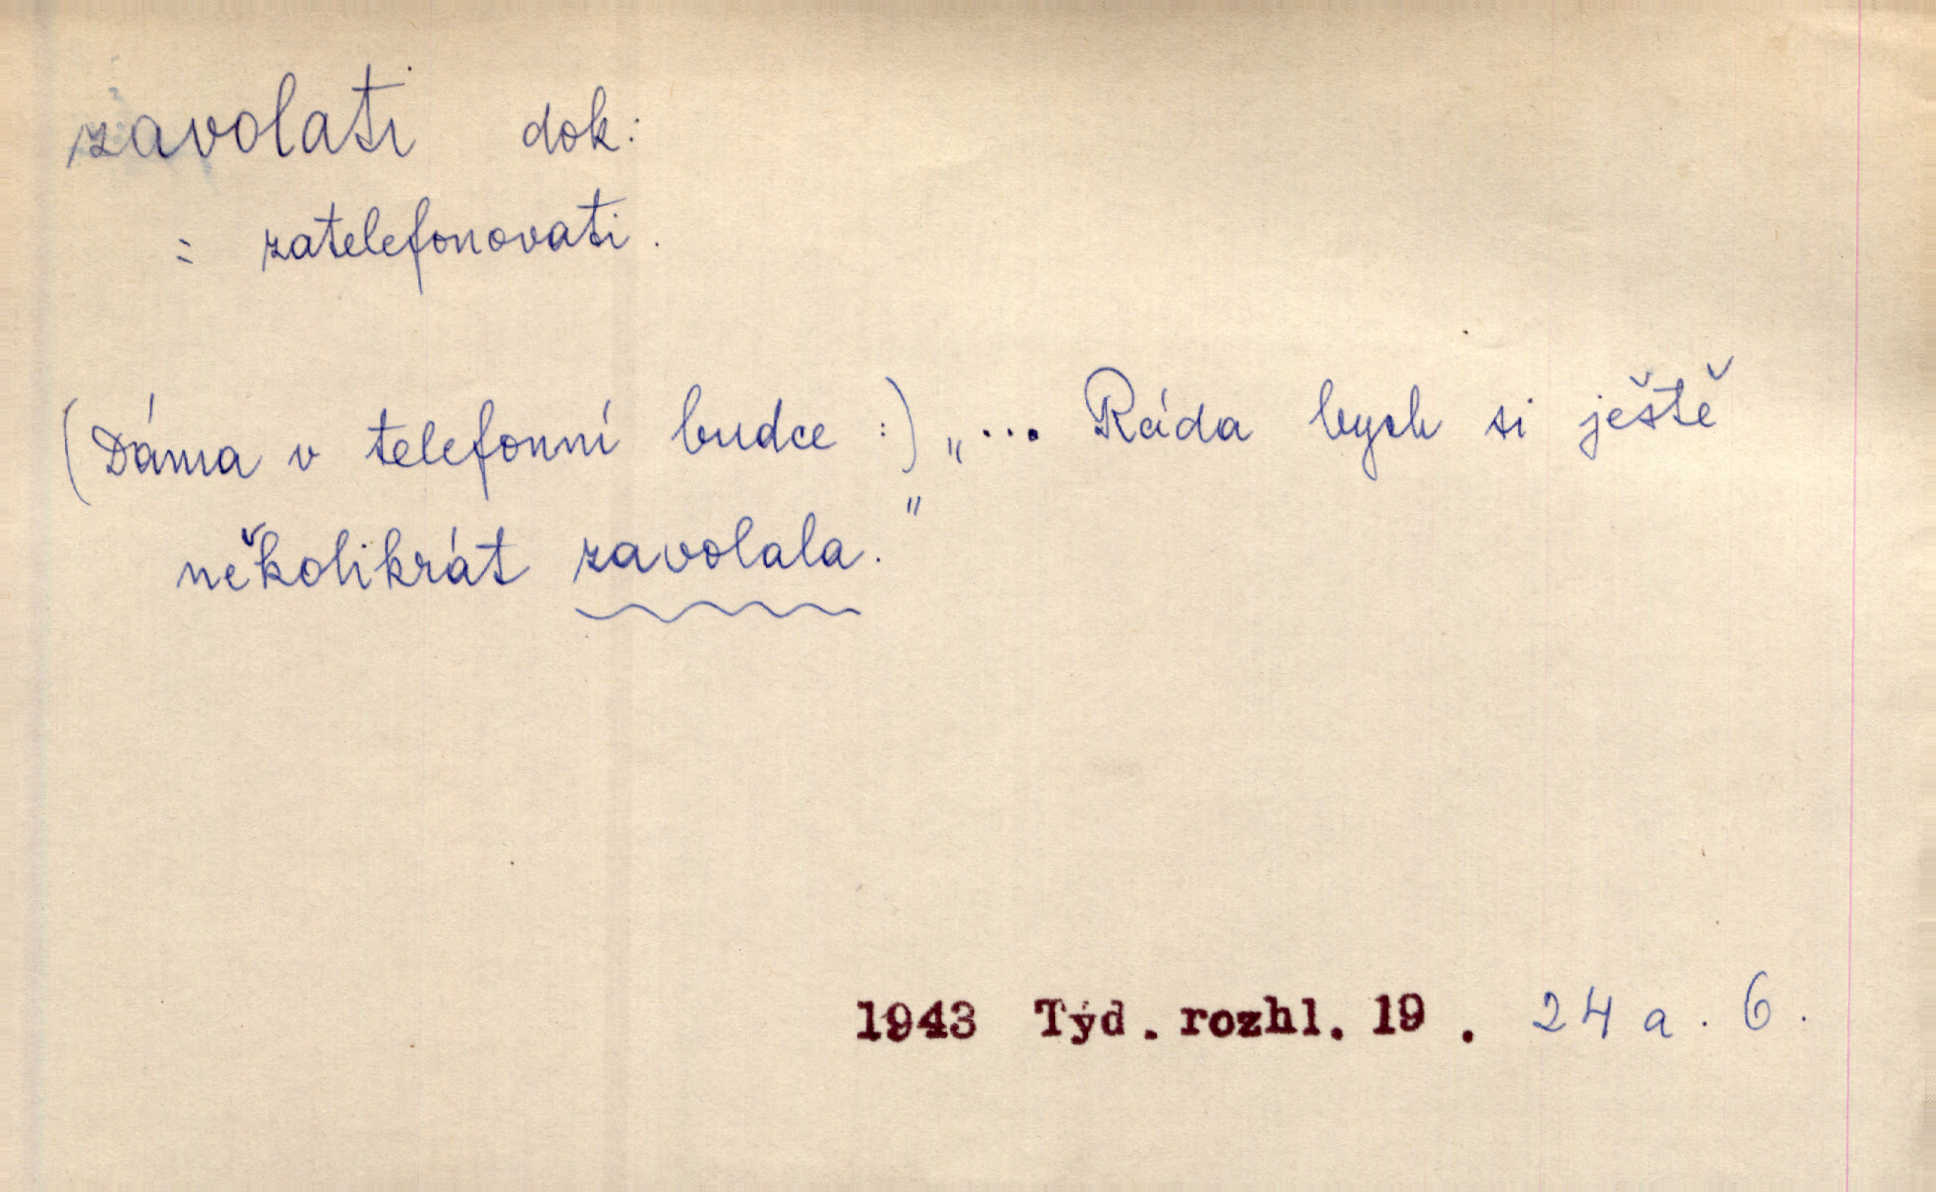 zavolati dok:
= zatelefonovati.
(Dáma v telefonní budce:) „... Ráda bych si ještě
několikrát zavolala."
1943 Týd. rozhl. 19. 24 a. 6.